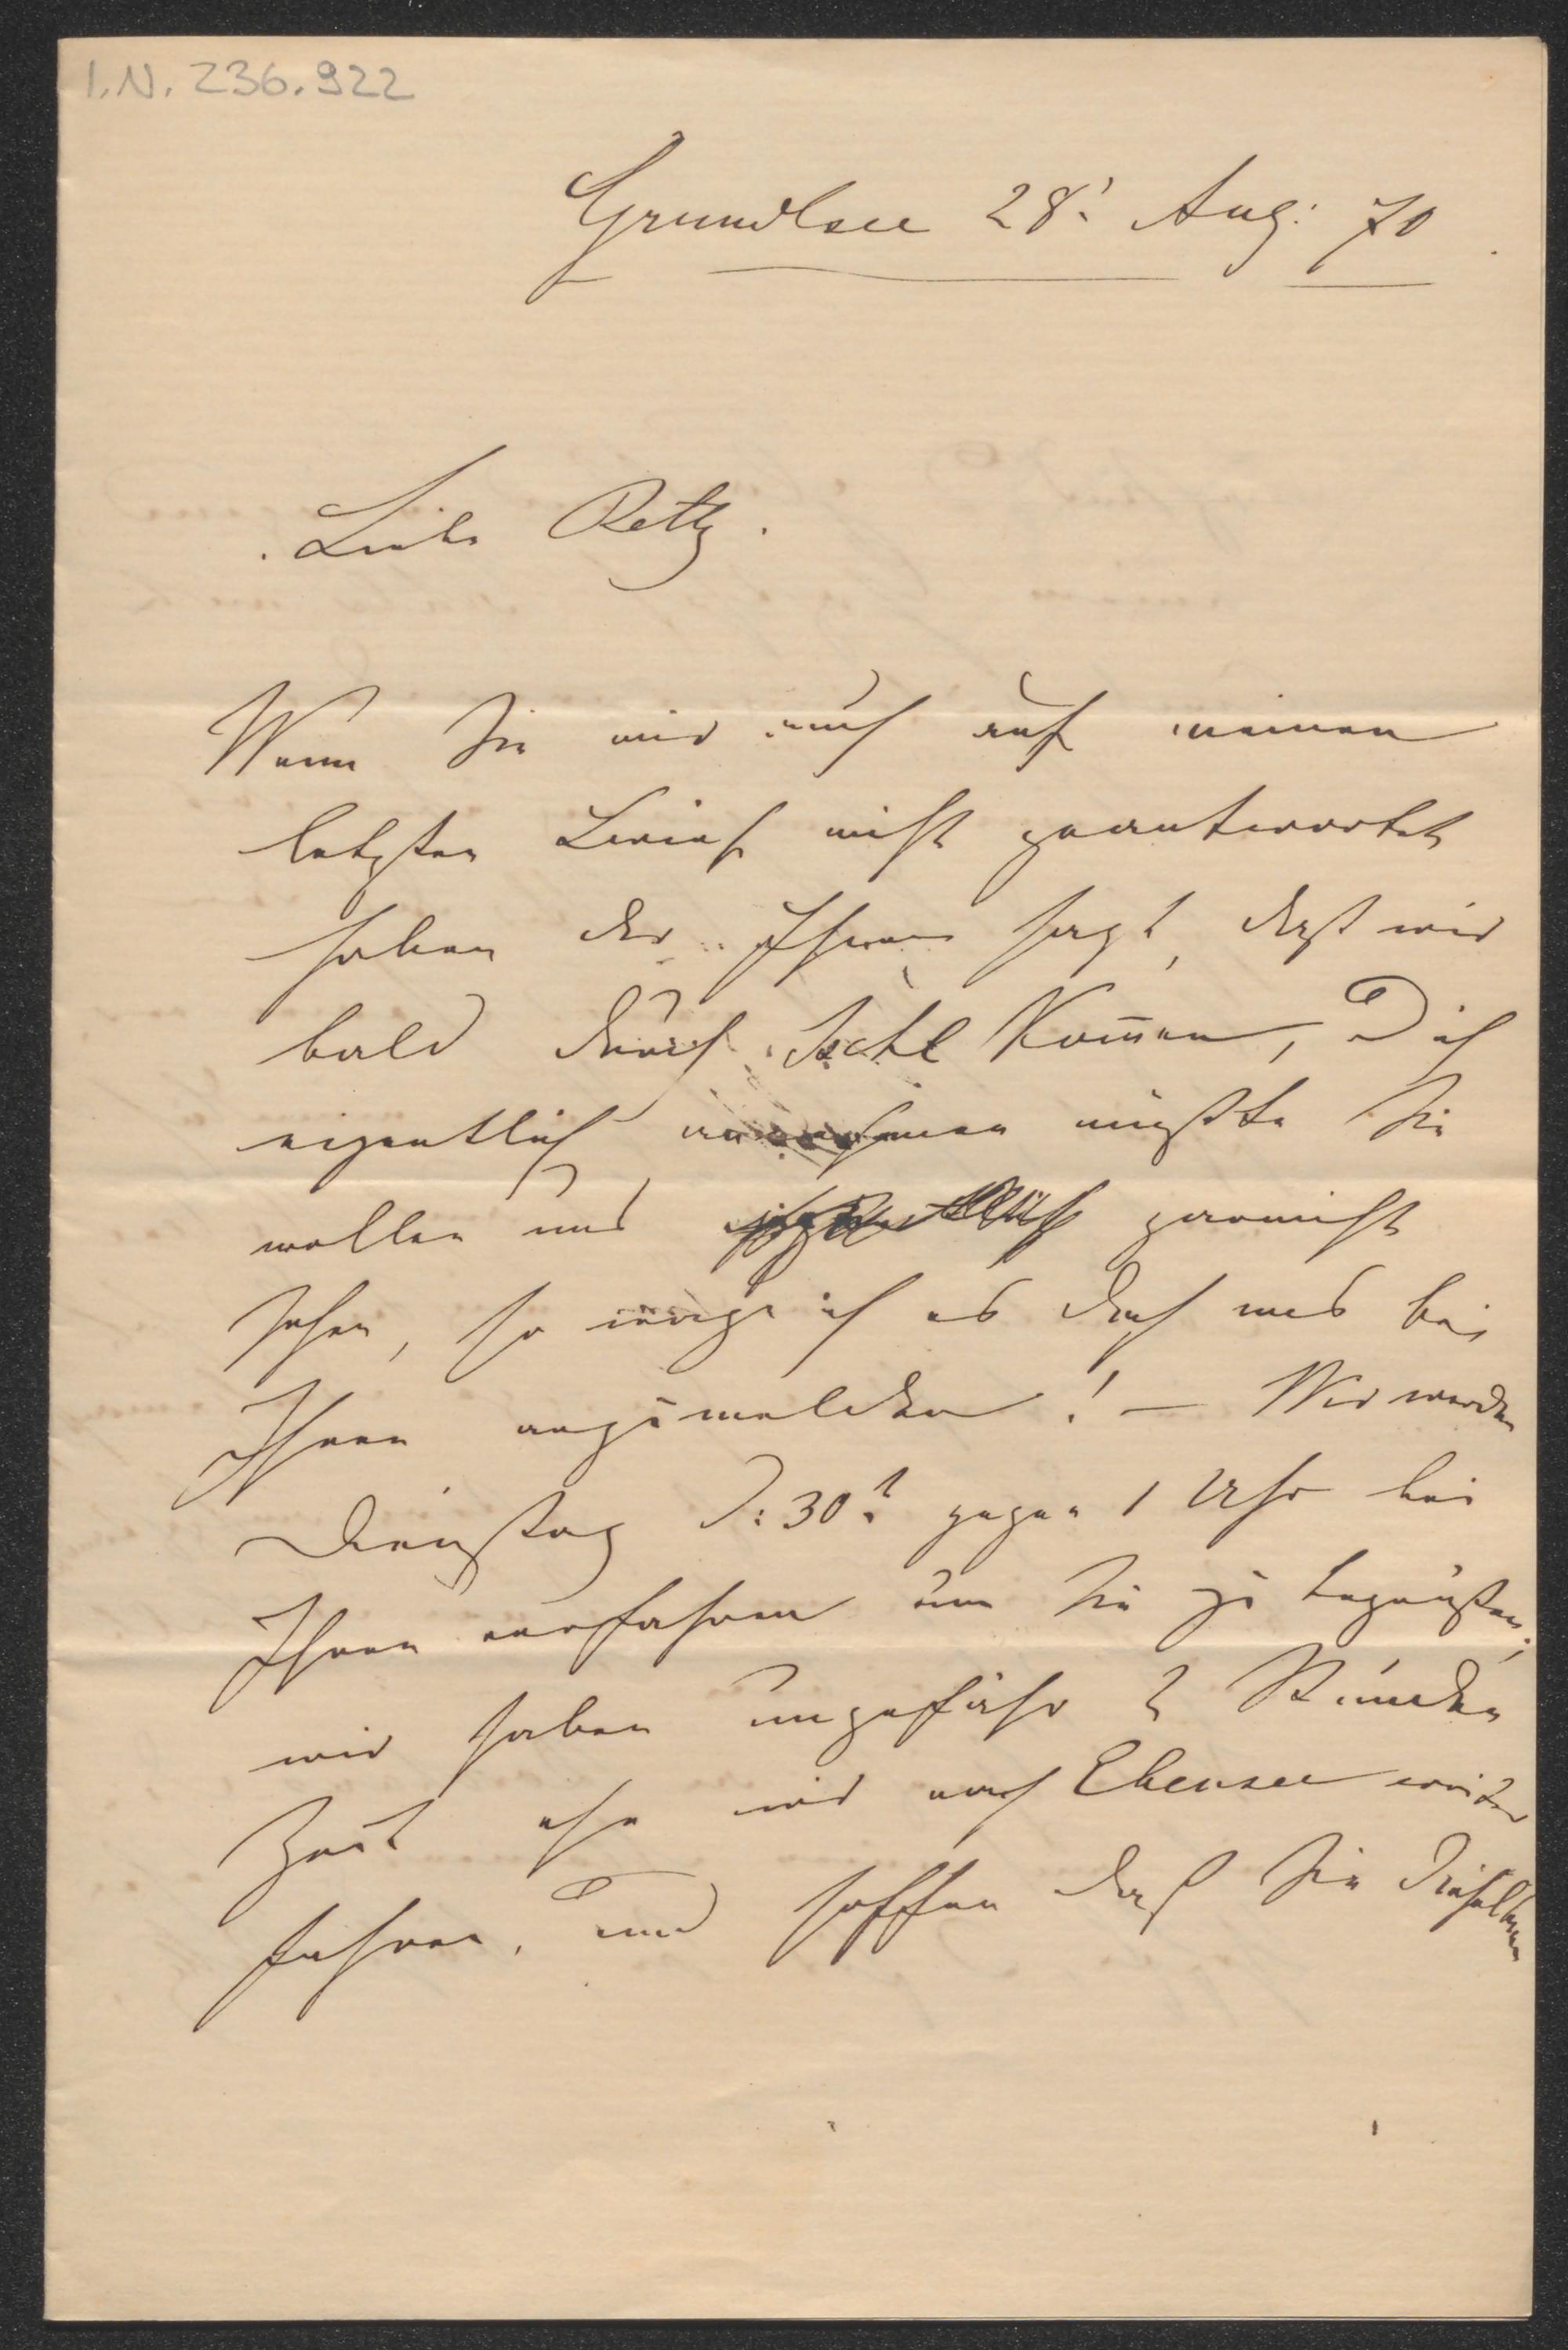 I.N. 236.922
Grundlsee 28! Aug: 70
Liebe Betty.
Wenn Sie mir auch auf meinen
letzten Brief nicht geantwortet
haben der Ihnen sagt, daß wir
bald durch Ischl kom̄en, & ich
eigentlich annehmen müßte Sie
wollen uns gar nicht
sehen, so wage ich es doch uns bei
Ihnen anzumelden! – Wir werden
Dienstag d: 30! gegen 1 Uhr bei
Ihnen vorfahren um Sie zu begrüßen;
wir haben ungefähr 2 Stunden
Zeit ehe wir nach Ebensee weiter
fahren, und hoffen daß Sie dieselben